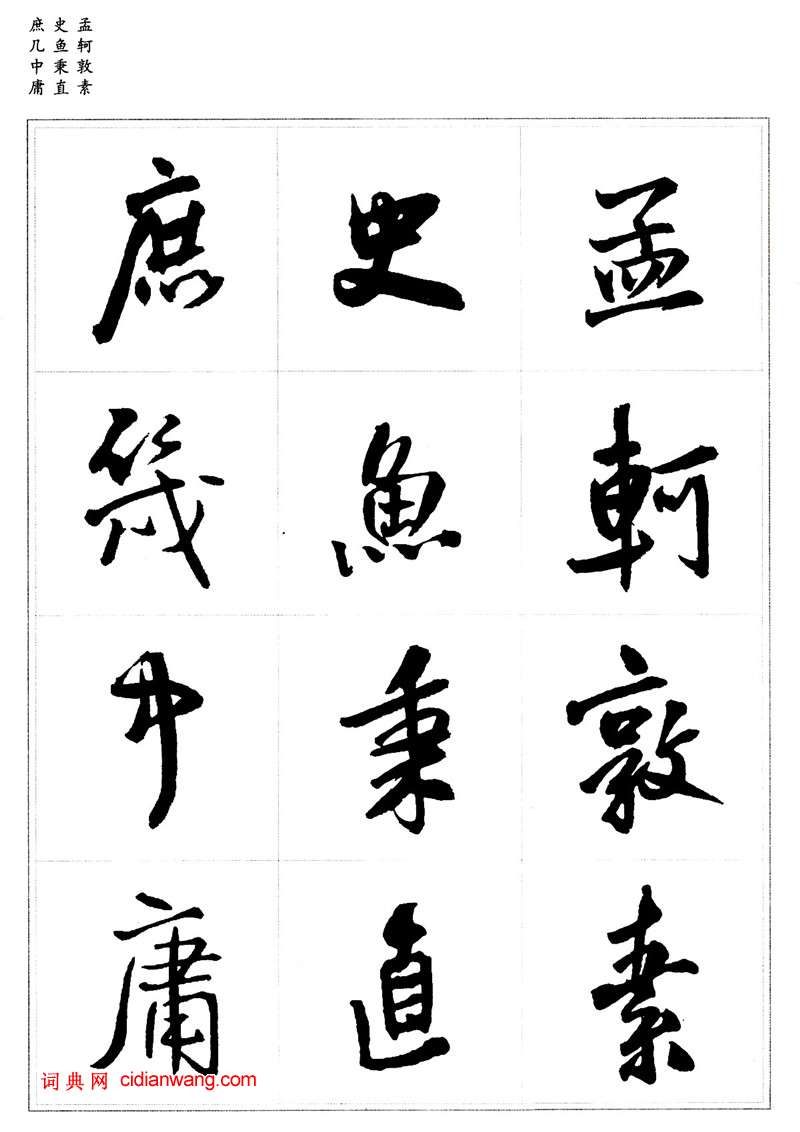 孟轲敦素
史鱼秉直
庶几中庸
孟軻敦素
史魚秉直
庶幾中庸
词典网 cidianwang.com